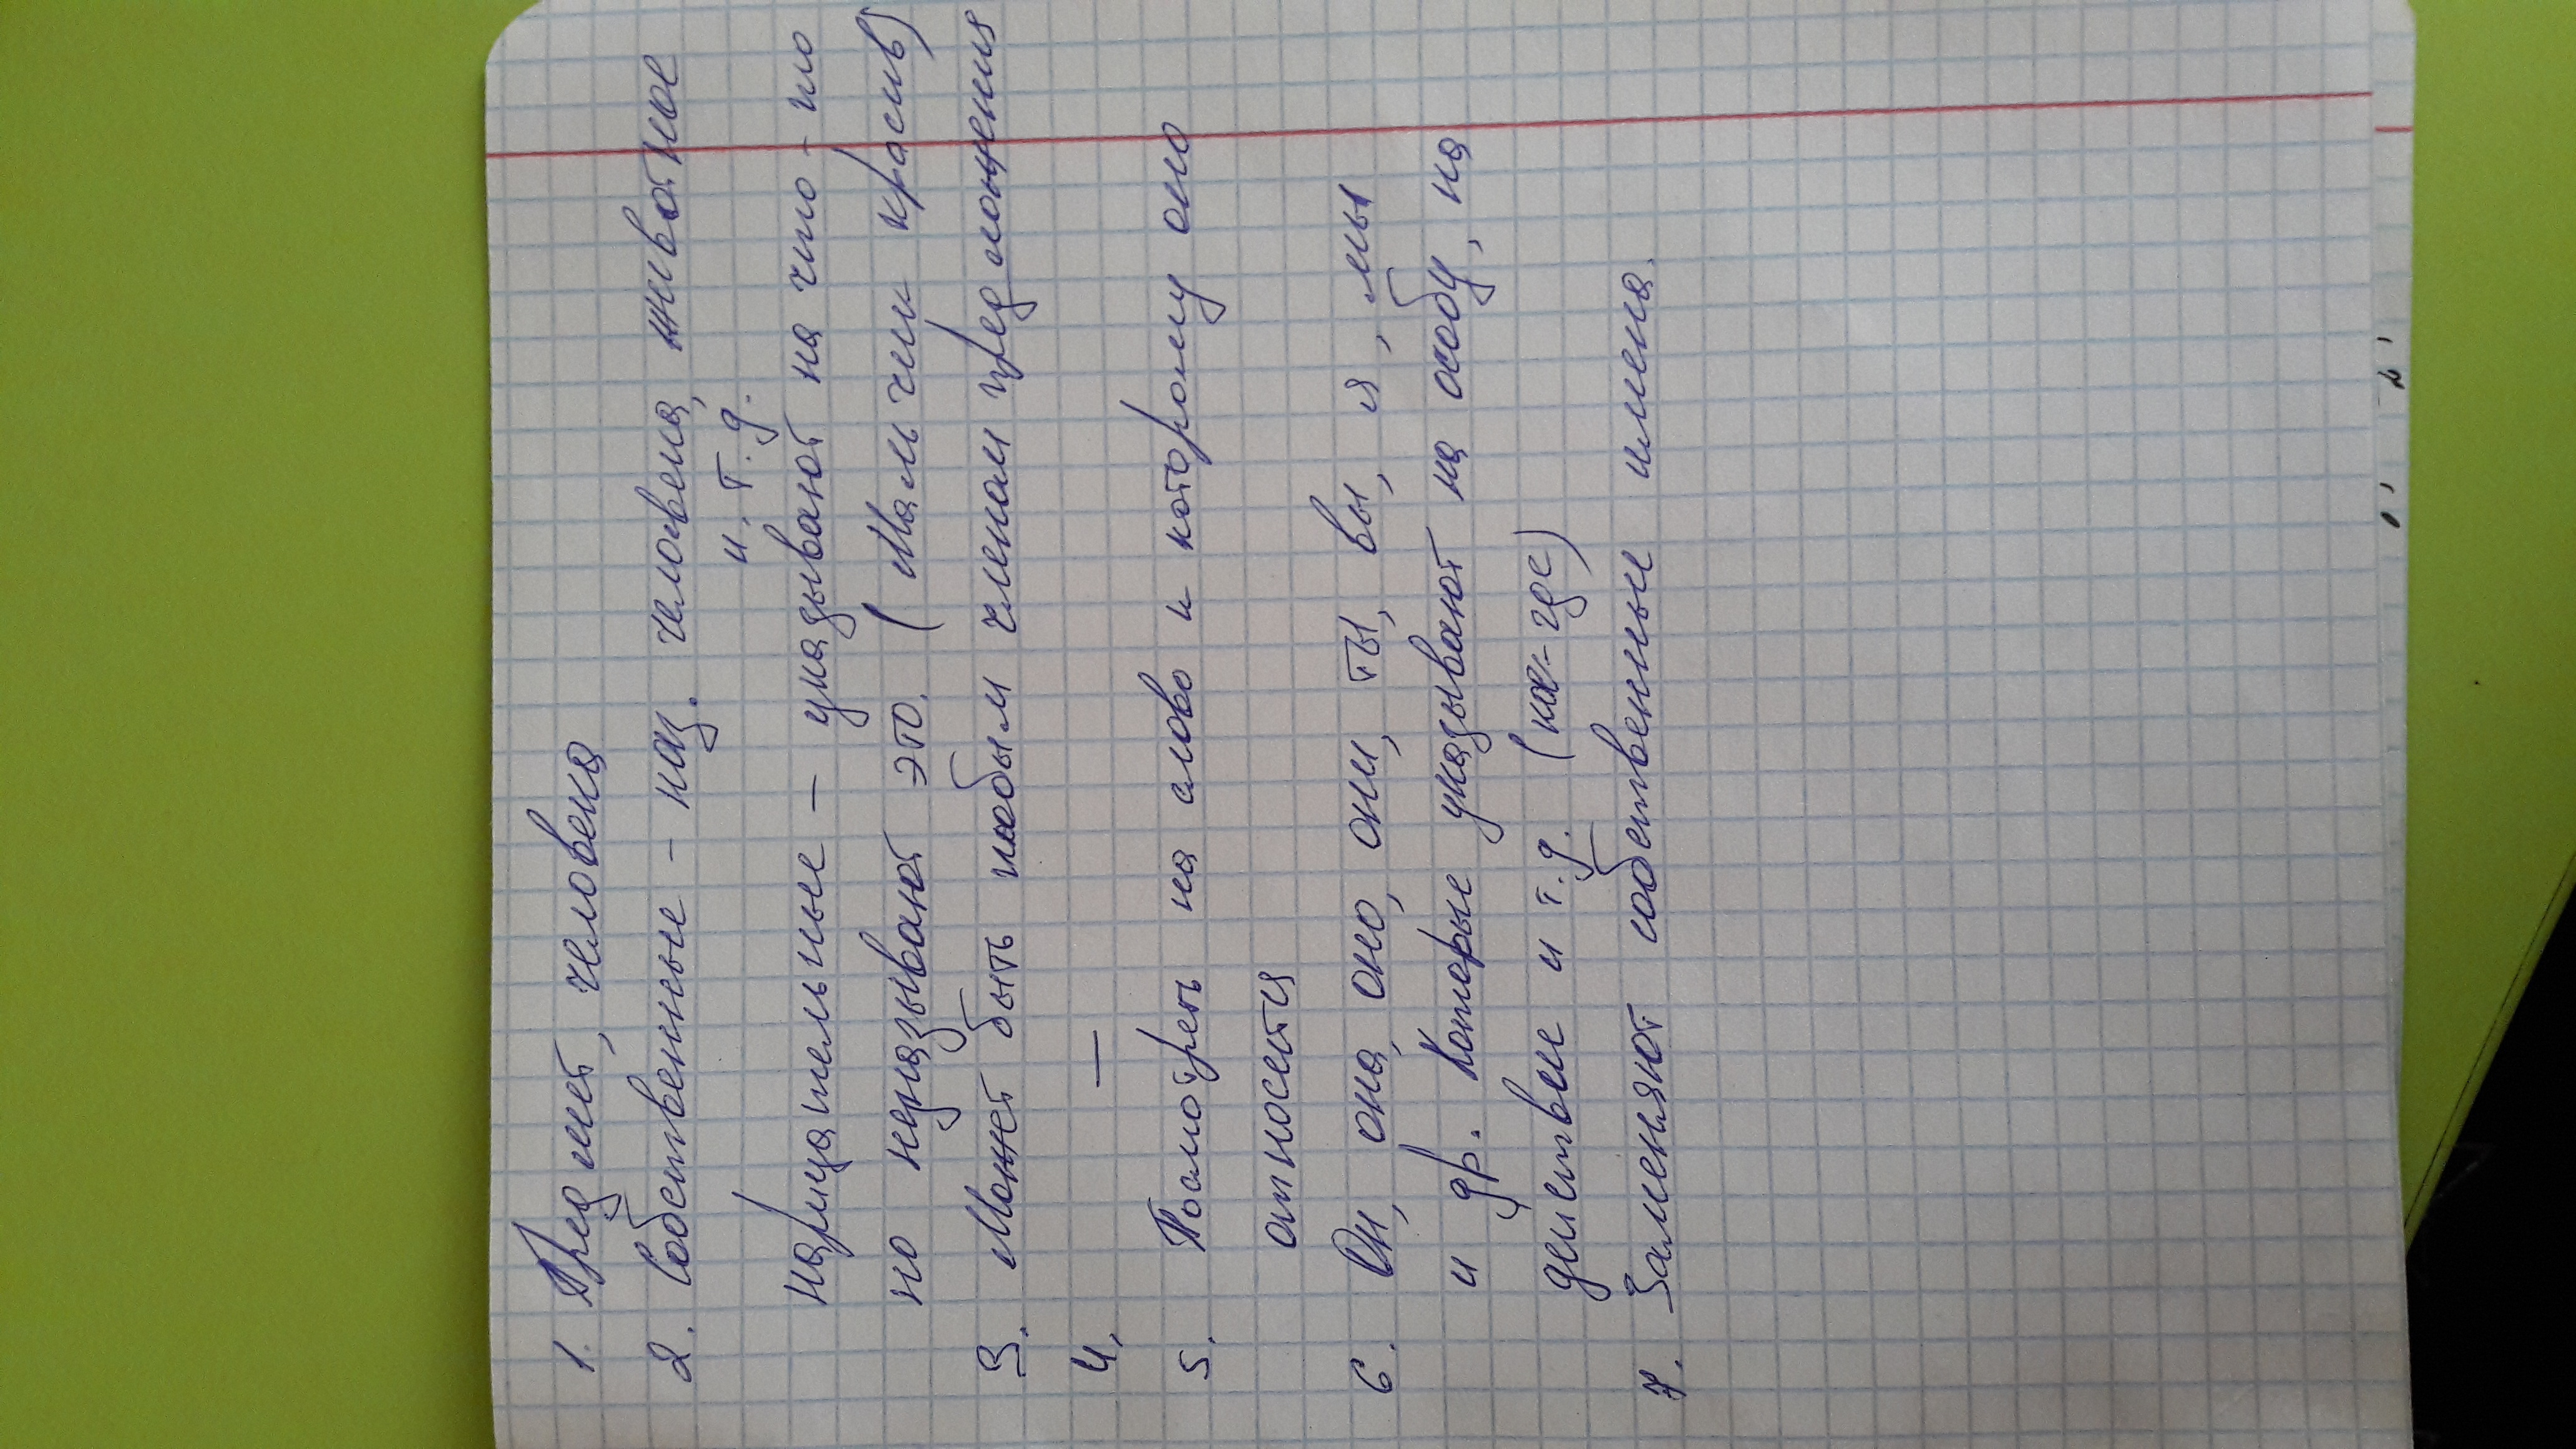 1. Предмет, человека
2. Собственные - наз. человека, животное
и. т. д.
нарицательные - указывают на что-то
но неназывают это. (Мальчик красив)
3. Может быть любым членом предложения
4. —
5. Посмотреть на слово к которому оно
относется
6. Он, она, оно, они, ты, вы, я, мы
и др. Которые указывают на особу, на
действие и т.д. (кое-где)
7. Заменяют собственные имена.